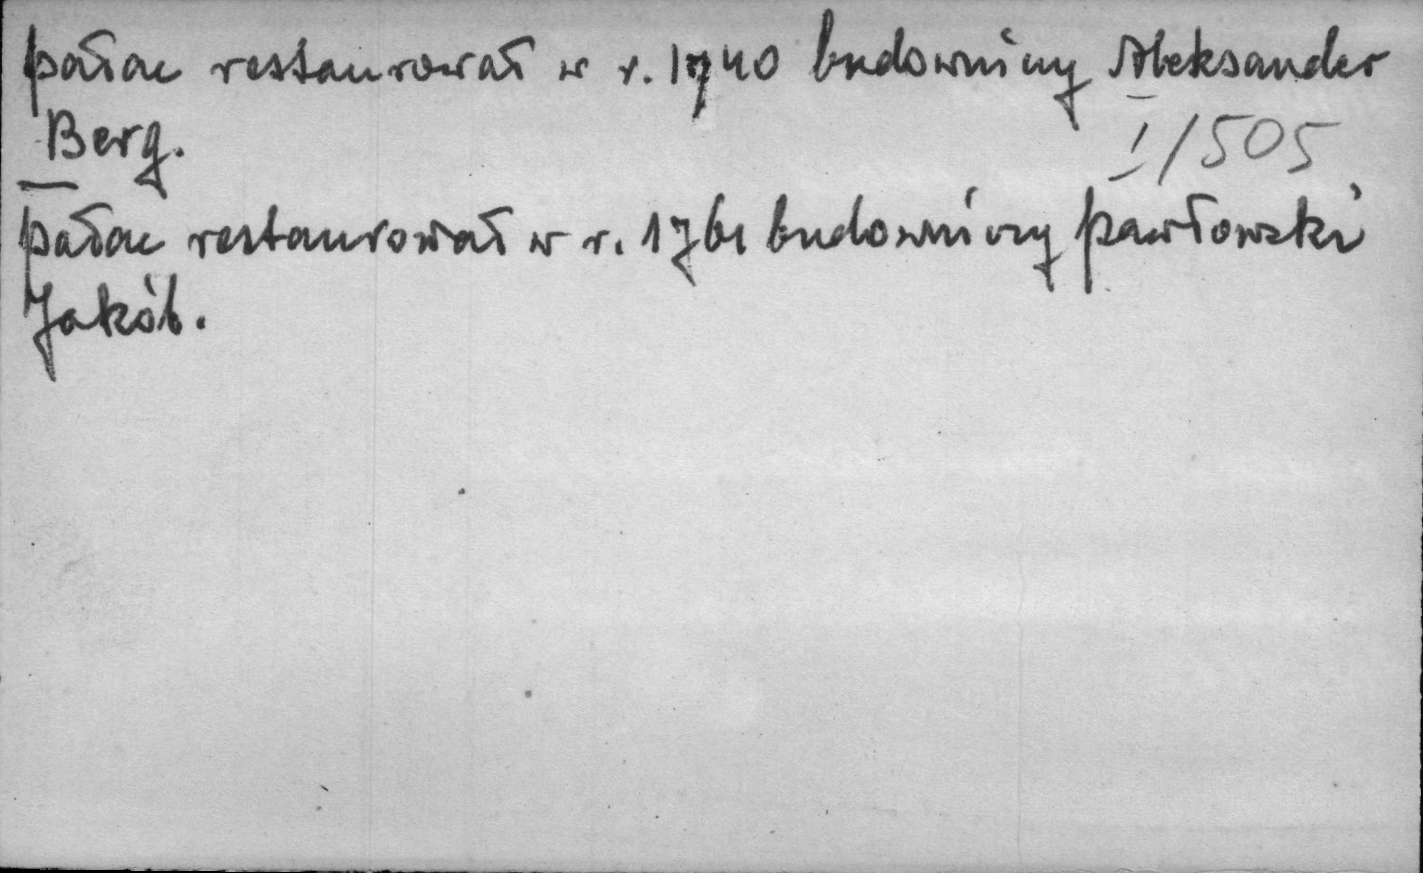 pałac restaurował w r. 1740 budowniczy Aleksander
Berg.
I/505
pałac restaurował w r. 1761 budowniczy Pawłowski
Jakób.